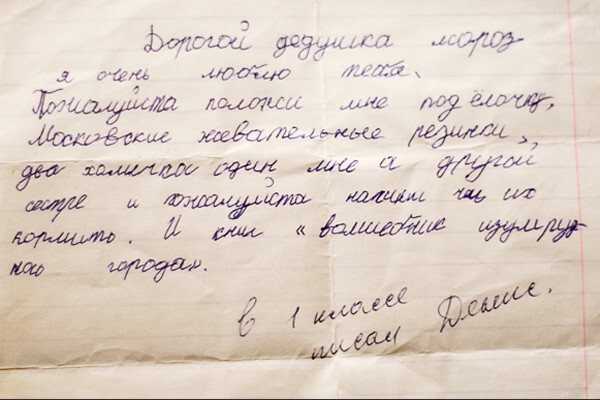 Дорогой дедушка мороз
я очень люблю тебя.
Пожалуйста положи мне под ёлочку,
Московские жевательные резинки,
два хомичка один мне а другой
сестре и пожалуйста напиши чем их
кормить. И книг «волшебник изумруд
ного города».
В 1 классе
писал Денис.